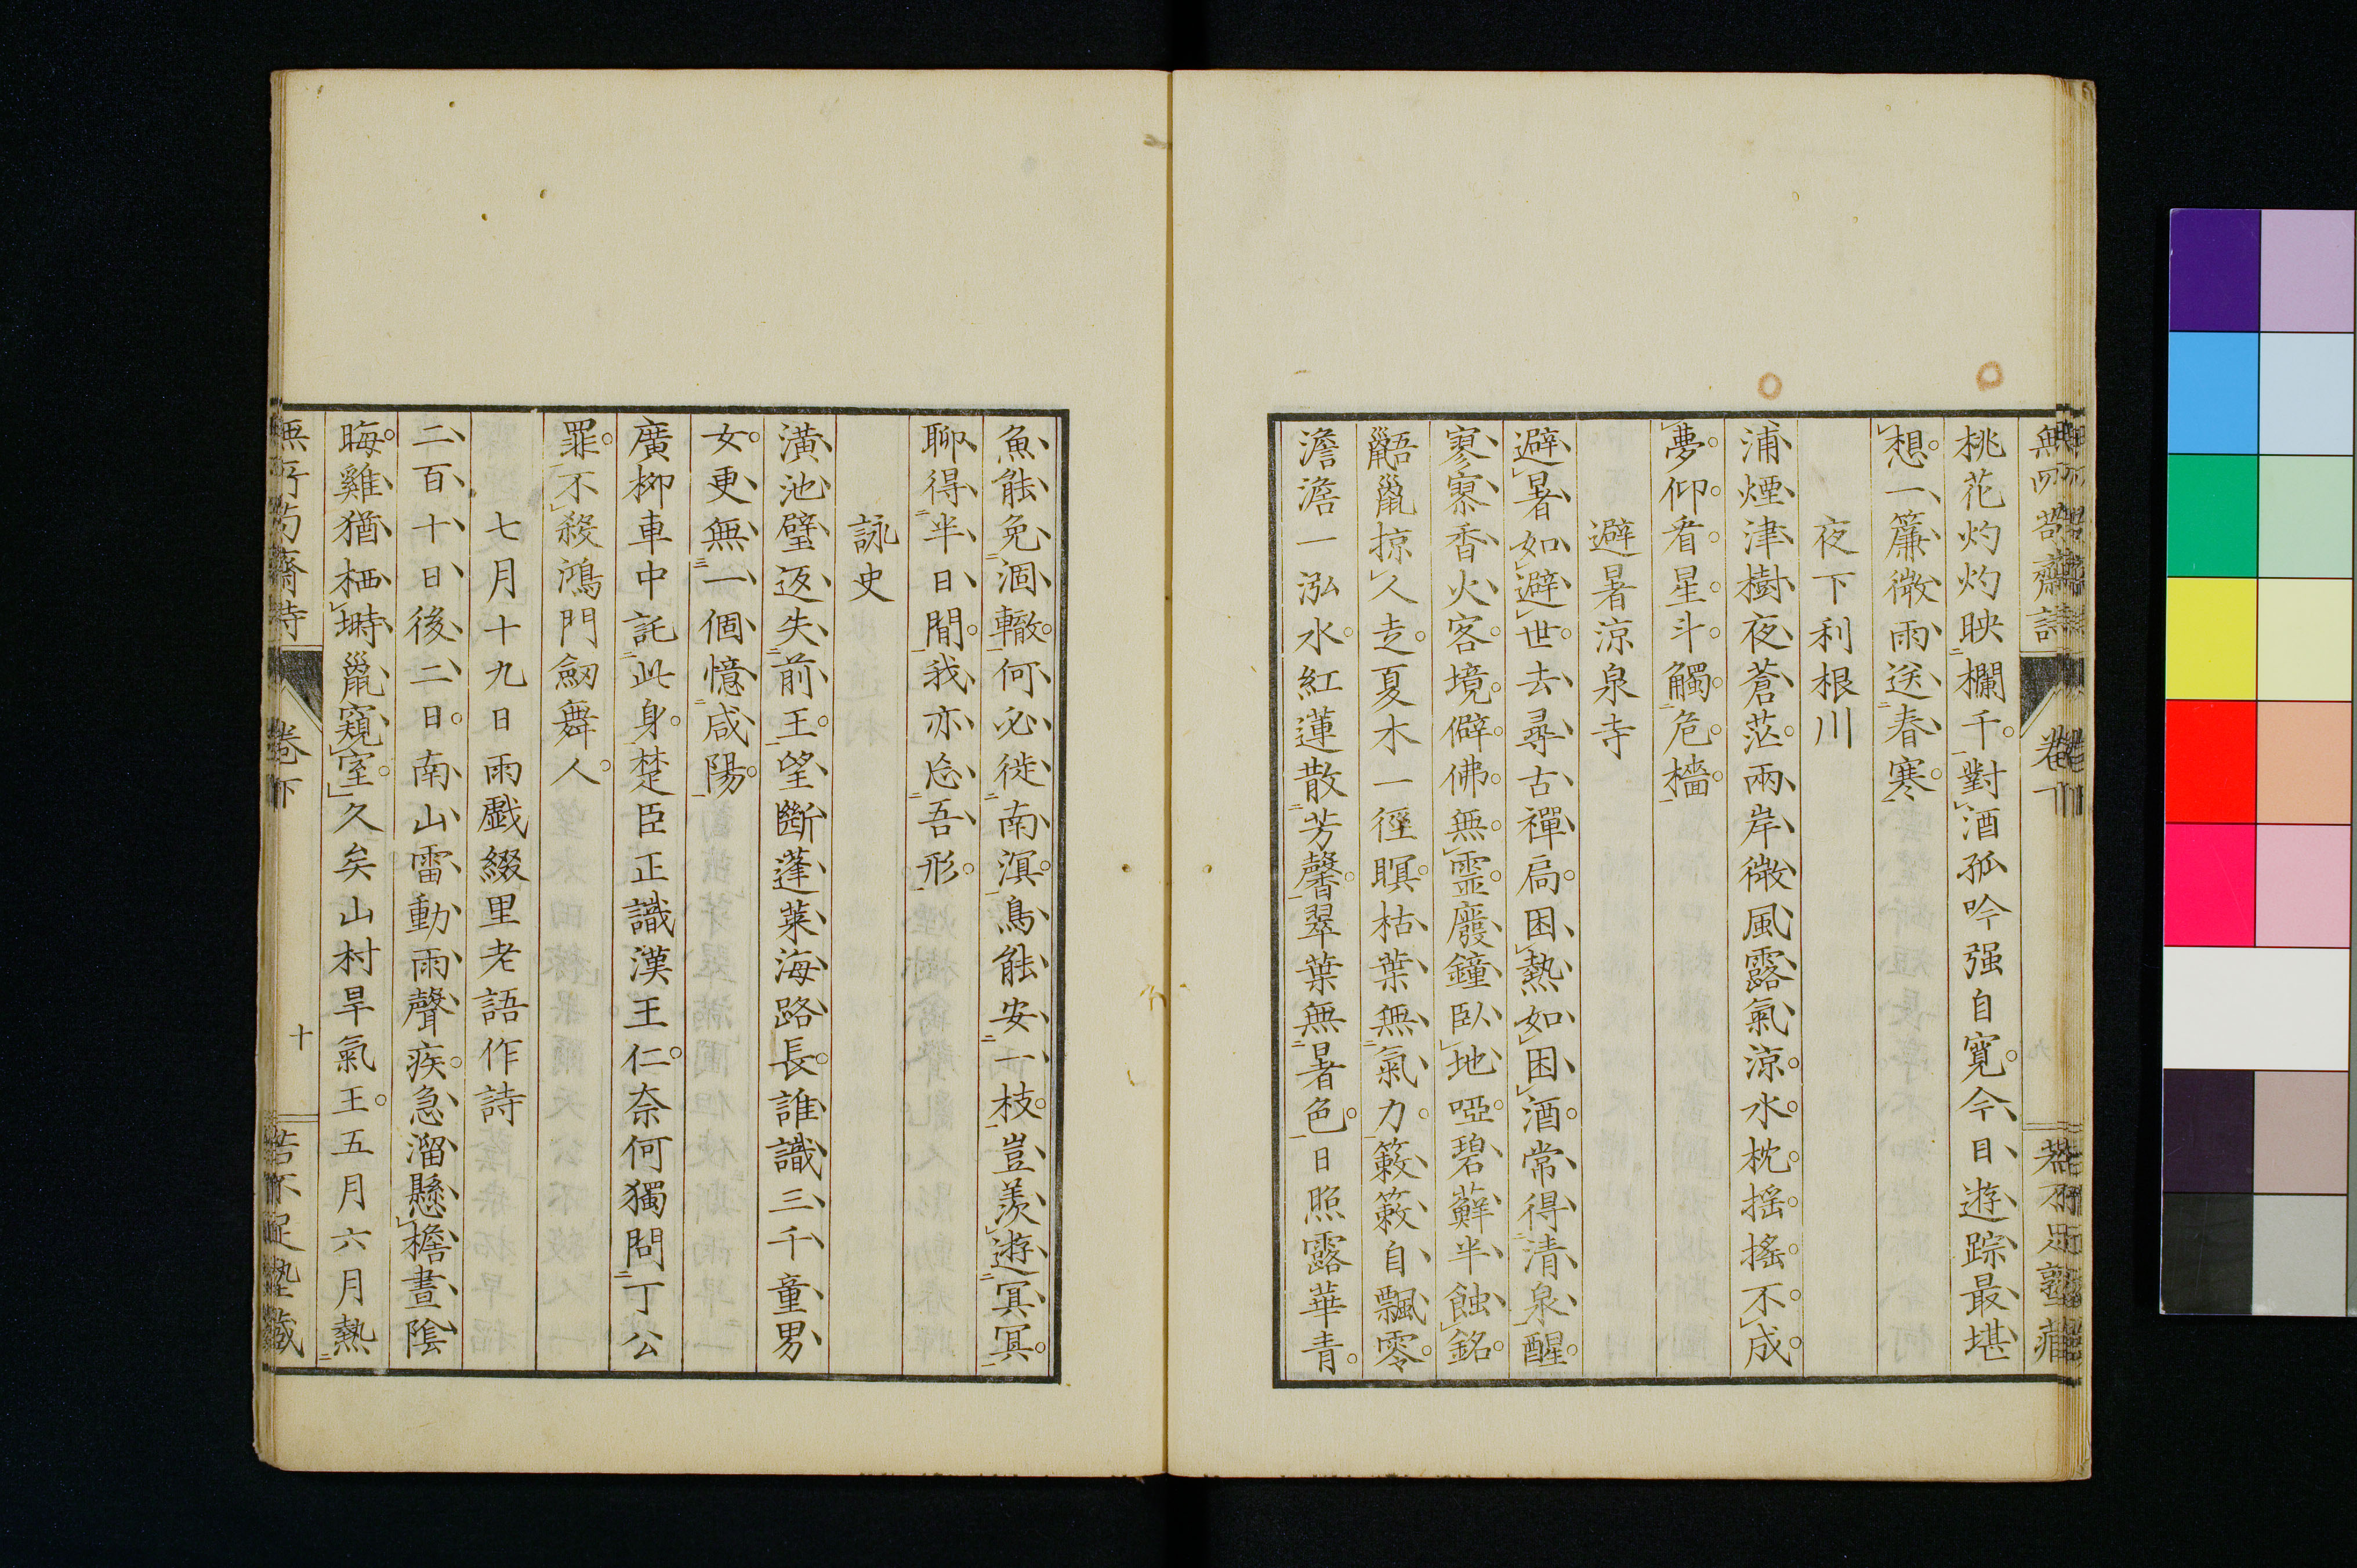 桃花灼灼映欄干對酒孤吟强自寬今日遊踪最堪
想一簾微雨送春寒
夜下利根川
浦煙津樹夜蒼茫兩岸微風露氣涼水枕搖搖不成
夢仰看星斗觸危檣
避暑涼泉寺
避暑如避世去尋古禪扃困熱如困酒常得清泉醒
寥寥香火客境僻佛無靈廢鐘臥地啞碧蘚半蝕銘
鼯鼠掠人走夏木一徑瞑枯葉無氣力簌簌自飄零
澹澹一泓水紅蓮散芳馨翠葉無暑色日照露華青
魚能免涸轍何必徙南溟鳥能安一枝豈羨遊冥冥
聊得半日間我亦忘吾形
詠史
潢池璧返失前王望斷蓬萊海路長誰識三千童男
女更無一個憶咸陽
廣柳車中託此身楚臣正識漢王仁奈何獨問丁公
罪不殺鴻門劒舞人
七月十九日雨戲綴里老語作詩
二百十日後二日南山雷動雨聲疾急溜懸檐晝陰
晦雞猶栖塒鼠窺室久矣山村旱氣王五月六月熱
卷下
十